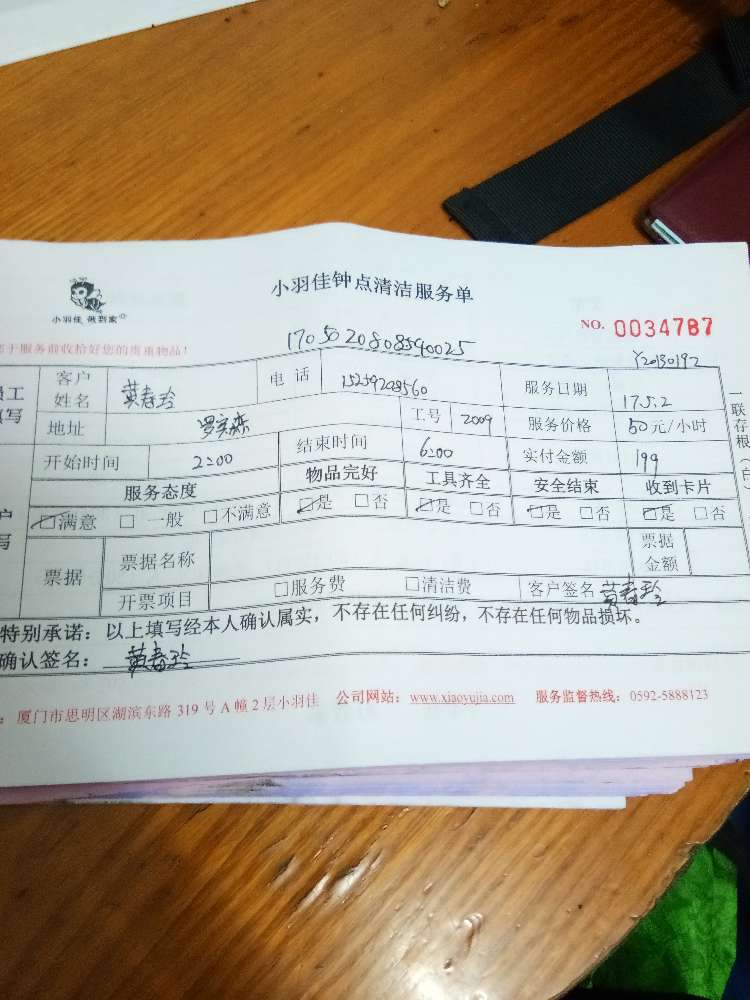 小羽佳钟点清洁服务单
小羽佳 做到家
NO. 0034787
于服务前收拾好您的贵重物品!
1705020808540025
Y20130192
员工 填写
客户姓名 黄春玲 电话 15259208560 服务日期 17.5.2
地址 工号 2009 服务价格 50元/小时
开始时间 2:00 结束时间 6:00 实付金额 199
服务态度 物品完好 工具齐全 安全结束 收到卡片
☑满意 □一般 □不满意 ☑是 □否 ☑是 □否 ☑是 □否 ☑是 □否
票据 票据名称 票据金额
开票项目 □服务费 □清洁费 客户签名 黄春玲
特别承诺:以上填写经本人确认属实,不存在任何纠纷,不存在任何物品损坏。
确认签名: 黄春玲
厦门市思明区湖滨东路 319 号 A 幢 2 层小羽佳 公司网站:www.xiaoyujia.com 服务监督热线:0592-5888123
一联存根(白)